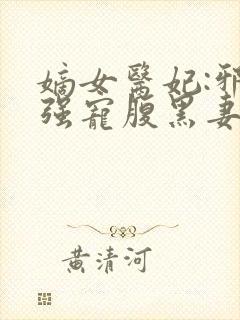 嫡女醫妃:邪
强寵腹黑妻
黃清河